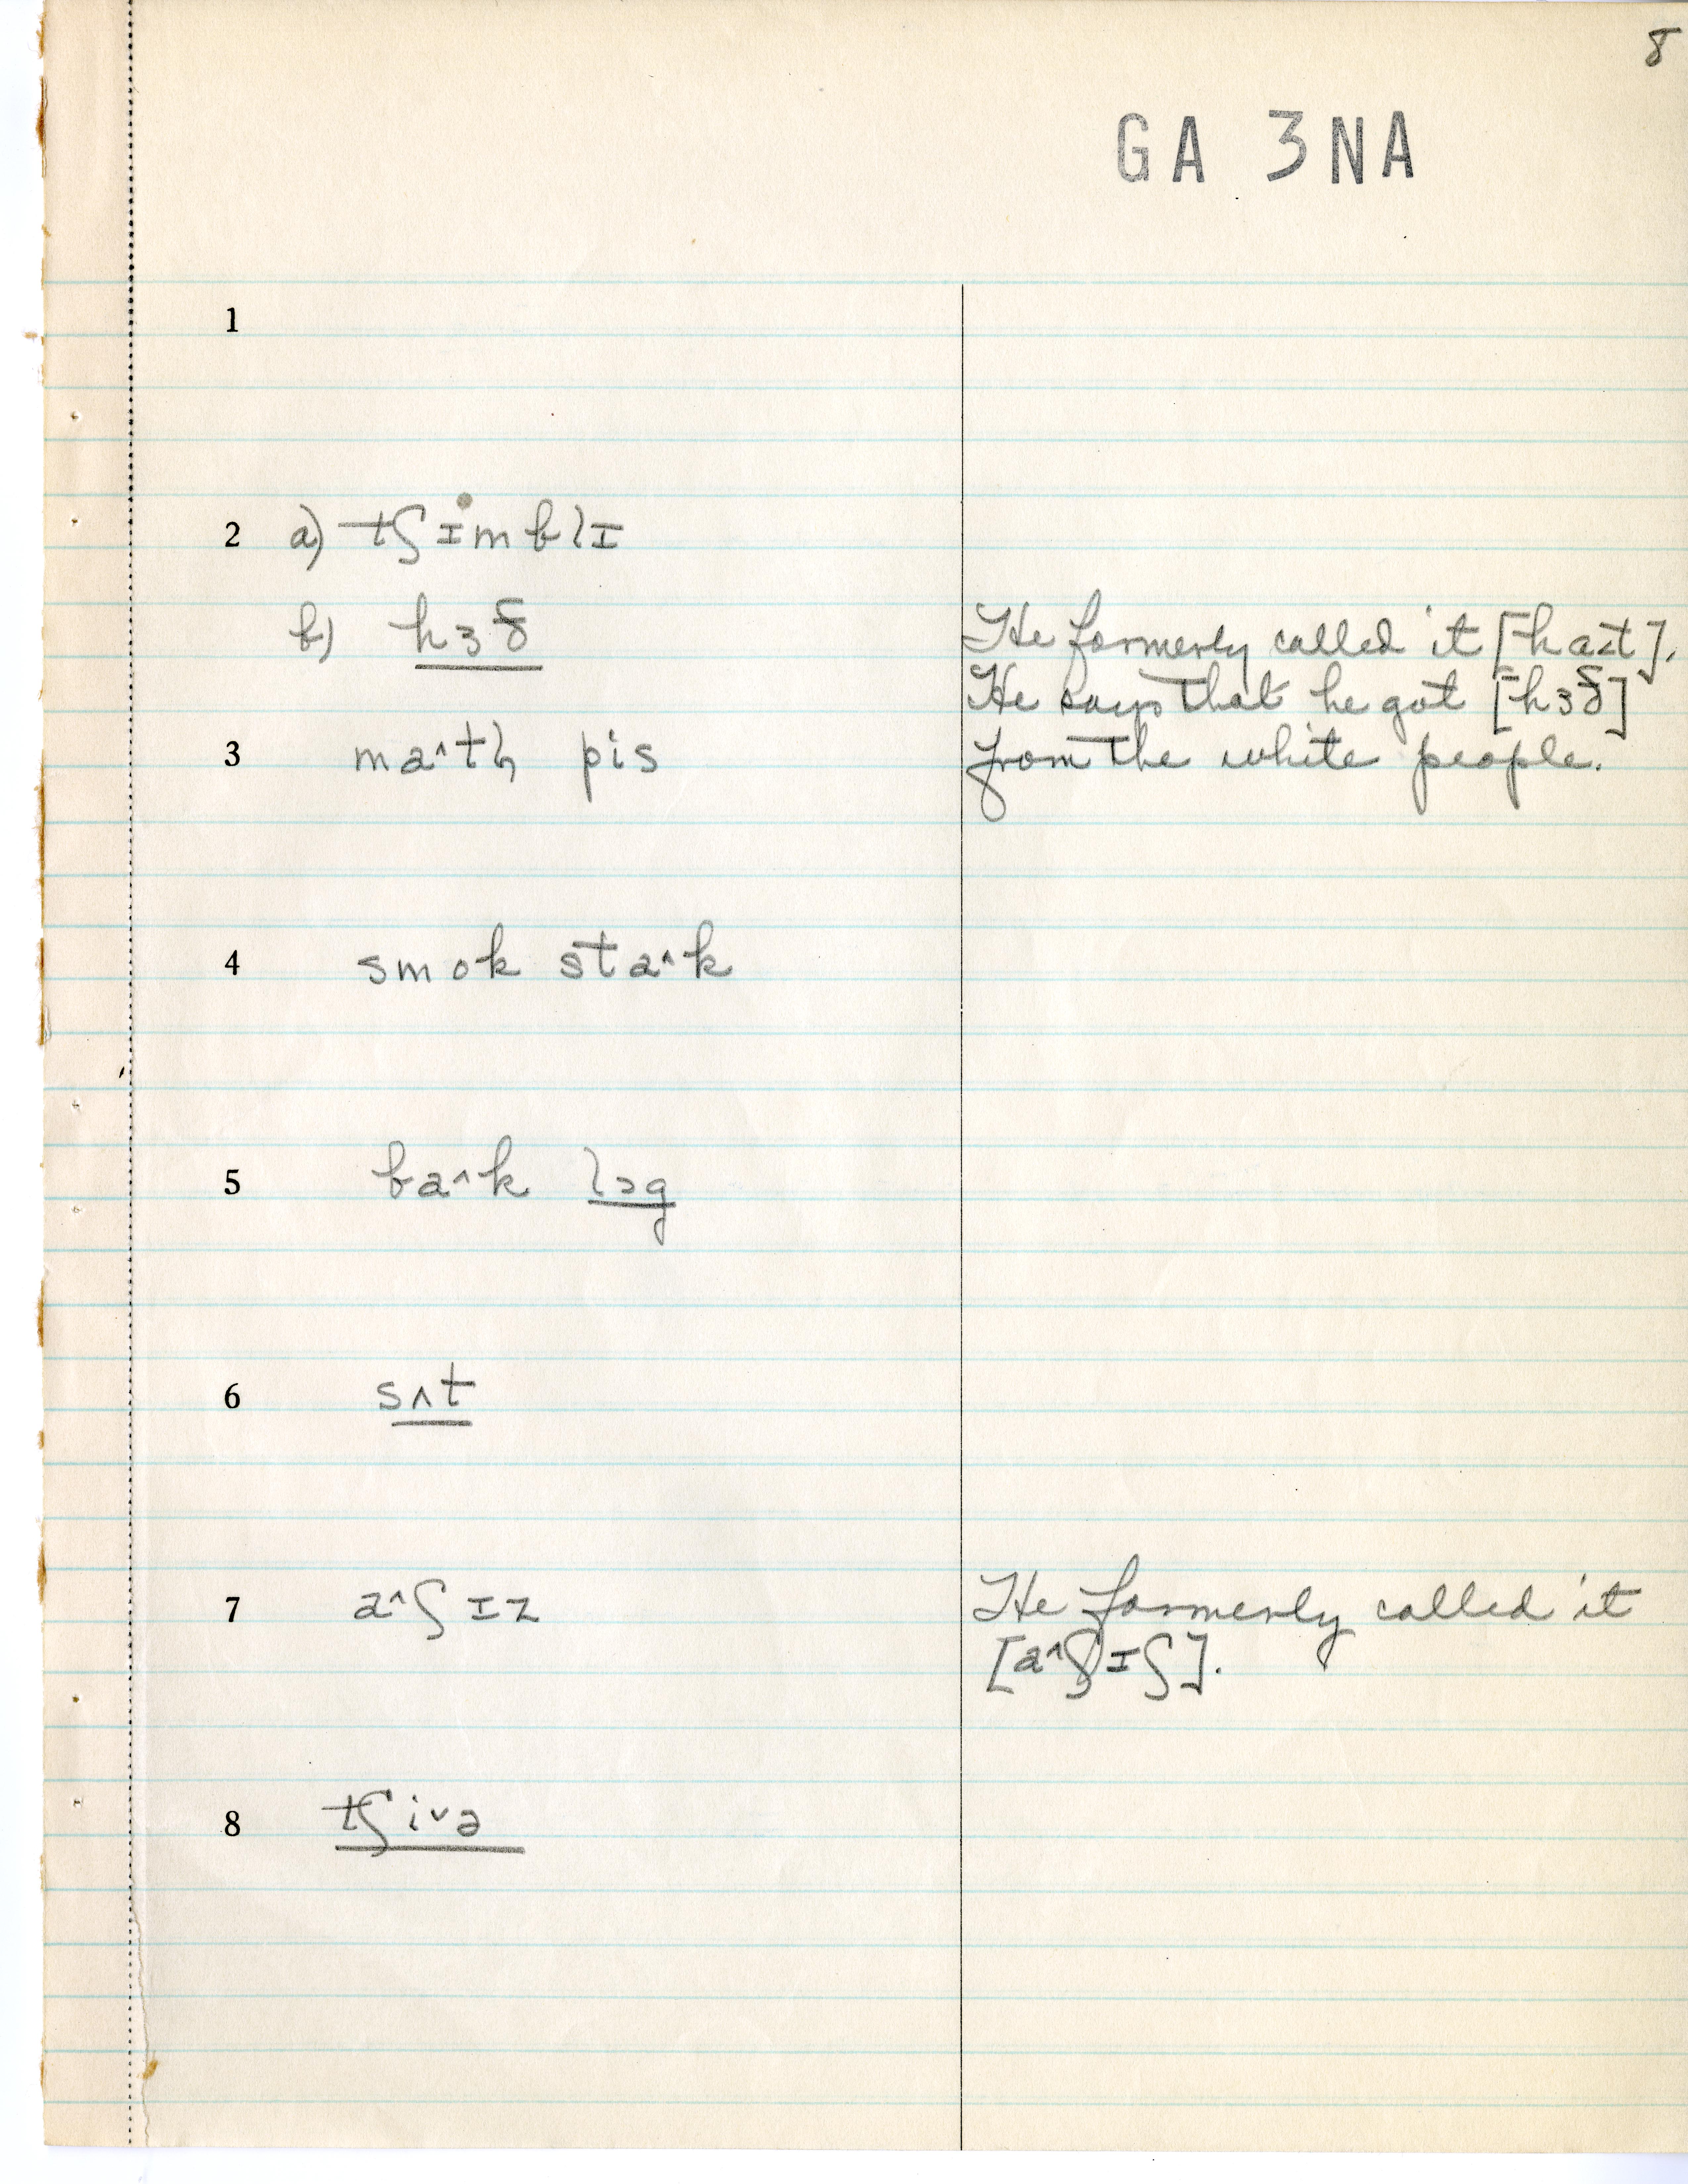 8
GA 3NA
1
2 a) tʃɪmblɪ
b) hɜθ̄
He formerly called it [ha˂t].
He says that he got [hɜθ̄]
3 ma^tḷ pis
from the white people.
4 smok sta^k
5 ba^k lɔg
6 sʌt
7 a^ʃɪz
He formerly called it
[a^ʃɪʃ].
8 tʃi˅ə